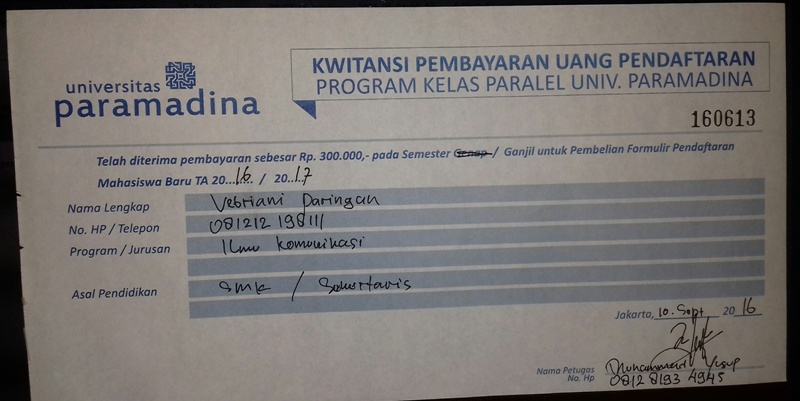 universitas
paramadina
KWITANSI PEMBAYARAN UANG PENDAFTARAN
PROGRAM KELAS PARALEL UNIV. PARAMADINA
160613
Telah diterima pembayaran sebesar Rp. 300.000,- pada Semester Genap / Ganjil untuk Pembelian Formulir Pendaftaran
Mahasiswa Baru TA 20..16.... / 20..17
Nama Lengkap Vebriani Paringan
No. HP / Telepon 081212 198111
Program / Jurusan Ilmu Komunikasi
Asal Pendidikan SMK / Sekertaris
Jakarta, 10. Sept 20 16
Nama Petugas Muhammad Yusup
No. Hp 0812 8193 4945